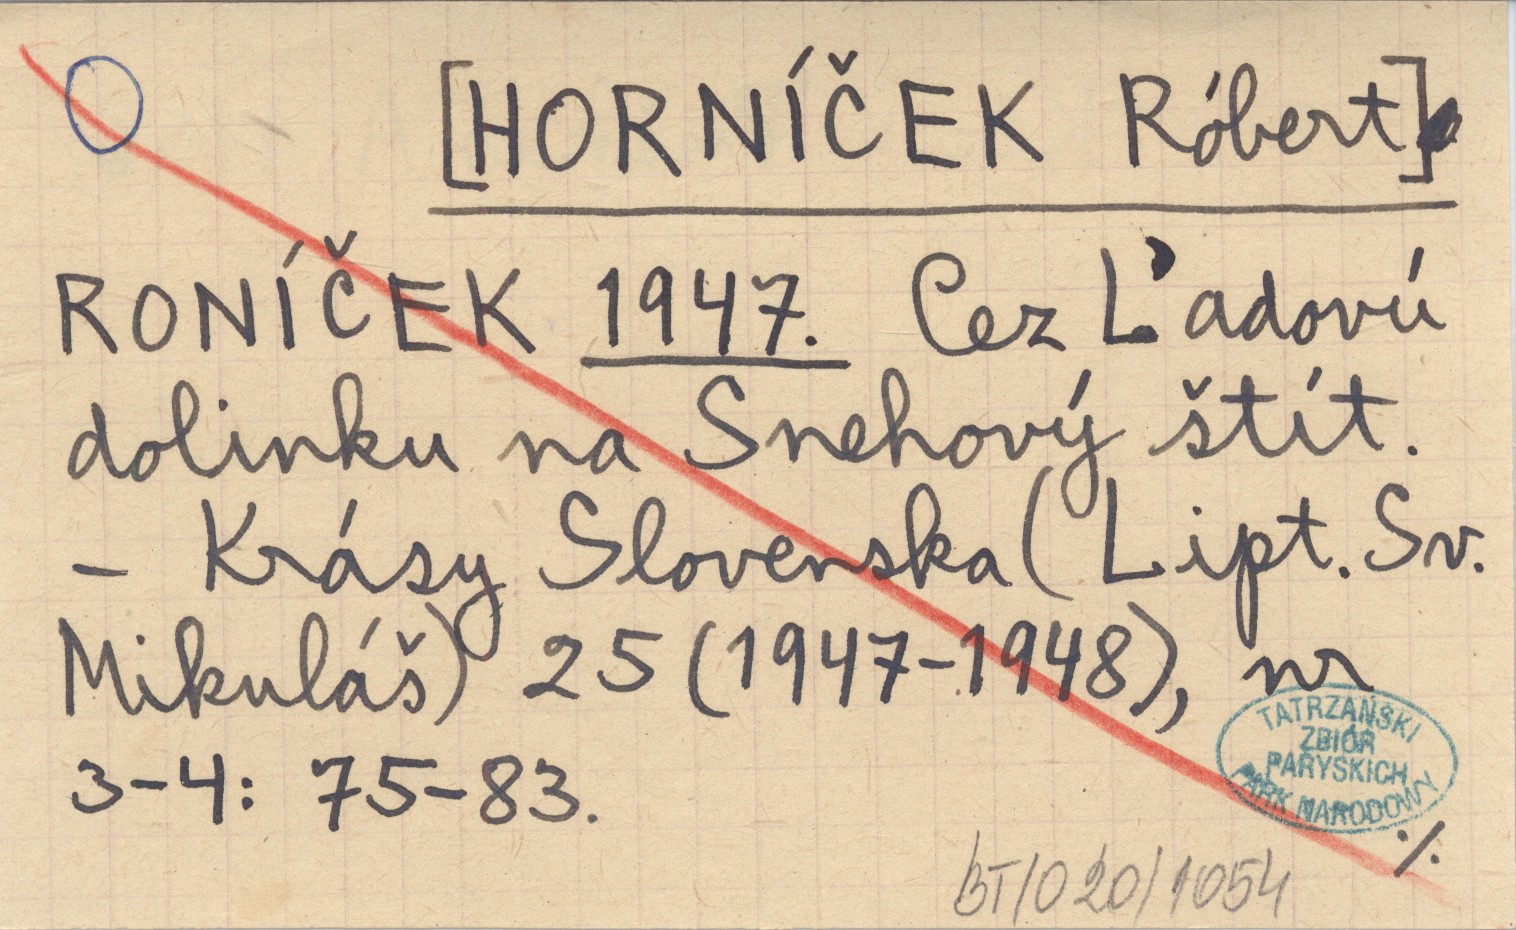 [HORNÍČEK Róbert]
RONÍČEK 1947. Cez Ľadovú
dolinku na Snehový štít.
– Krásy Slovenska (Lipt. Sv.
Mikuláš) 25 (1947-1948), nr
3-4: 75-83.
TATRZAŃSKI
ZBIÓR
PARYSKICH
PARK NARODOWY
./.
BT/020/1054